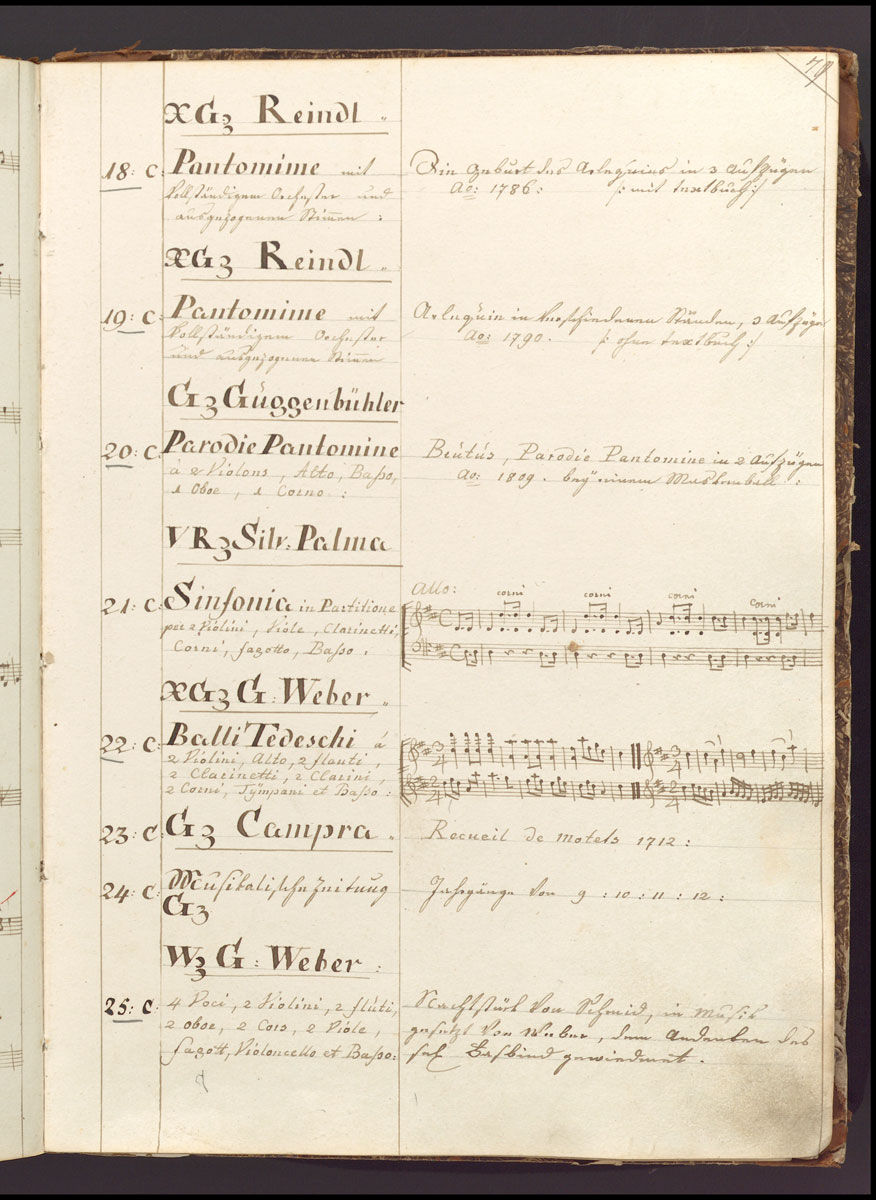 XGz Reindl "
18: C: Pantomime mit
vollständigem Orchester und
ausgezogenen Stimmen :
Die Geburt des Arlequins in 3 Aufzügen
Ao: 1786: /: mit textbuch :/
XGz Reindl "
19: C: Pantomime mit
vollständigem Orchester
und ausgezogenen Stimmen
Arlequin in verschiedenen Ständen, 3 Aufzüge
Ao: 1790. /: ohne textbuch :/
Gz Güggenbühler
20: C: Parodie Pantomine
à 2 Violons, Alto, Basso,
1 Oboe, 1 Corno :
Brutus, Parodie Pantomine in 2 Aufzügen
Ao: 1809. beÿ einem Maskenball :
VRz Silv: Palma
21: C: Sinfonia in Partitione
per 2 Violini, Viole, Clarinetti,
Corni, fagotto, Basso.
Allo:
corni corni corni corni
XGz G: Weber "
22: C: Balli Tedeschi á
2 Violini, Alto, 2 flauti,
2 Clarinetti, 2 Clarini,
2 Corni, Tÿmpani et Basso :
23: C: Gz Campra "
Recueil de motets 1712 :
24: C: Musikalische Zeitung
Gz
Jahrgänge von 9 : 10 : 11 : 12 :
Wz G: Weber :
25: C: 4 Voci, 2 Violini, 2 flûti,
2 oboe, 2 Cors, 2 Viole,
fagott, Violoncello et Basso:
Nachtstück von Schmid, in Musik
gesetzt von Weber, dem Andenken des
sel. gewiedmet.